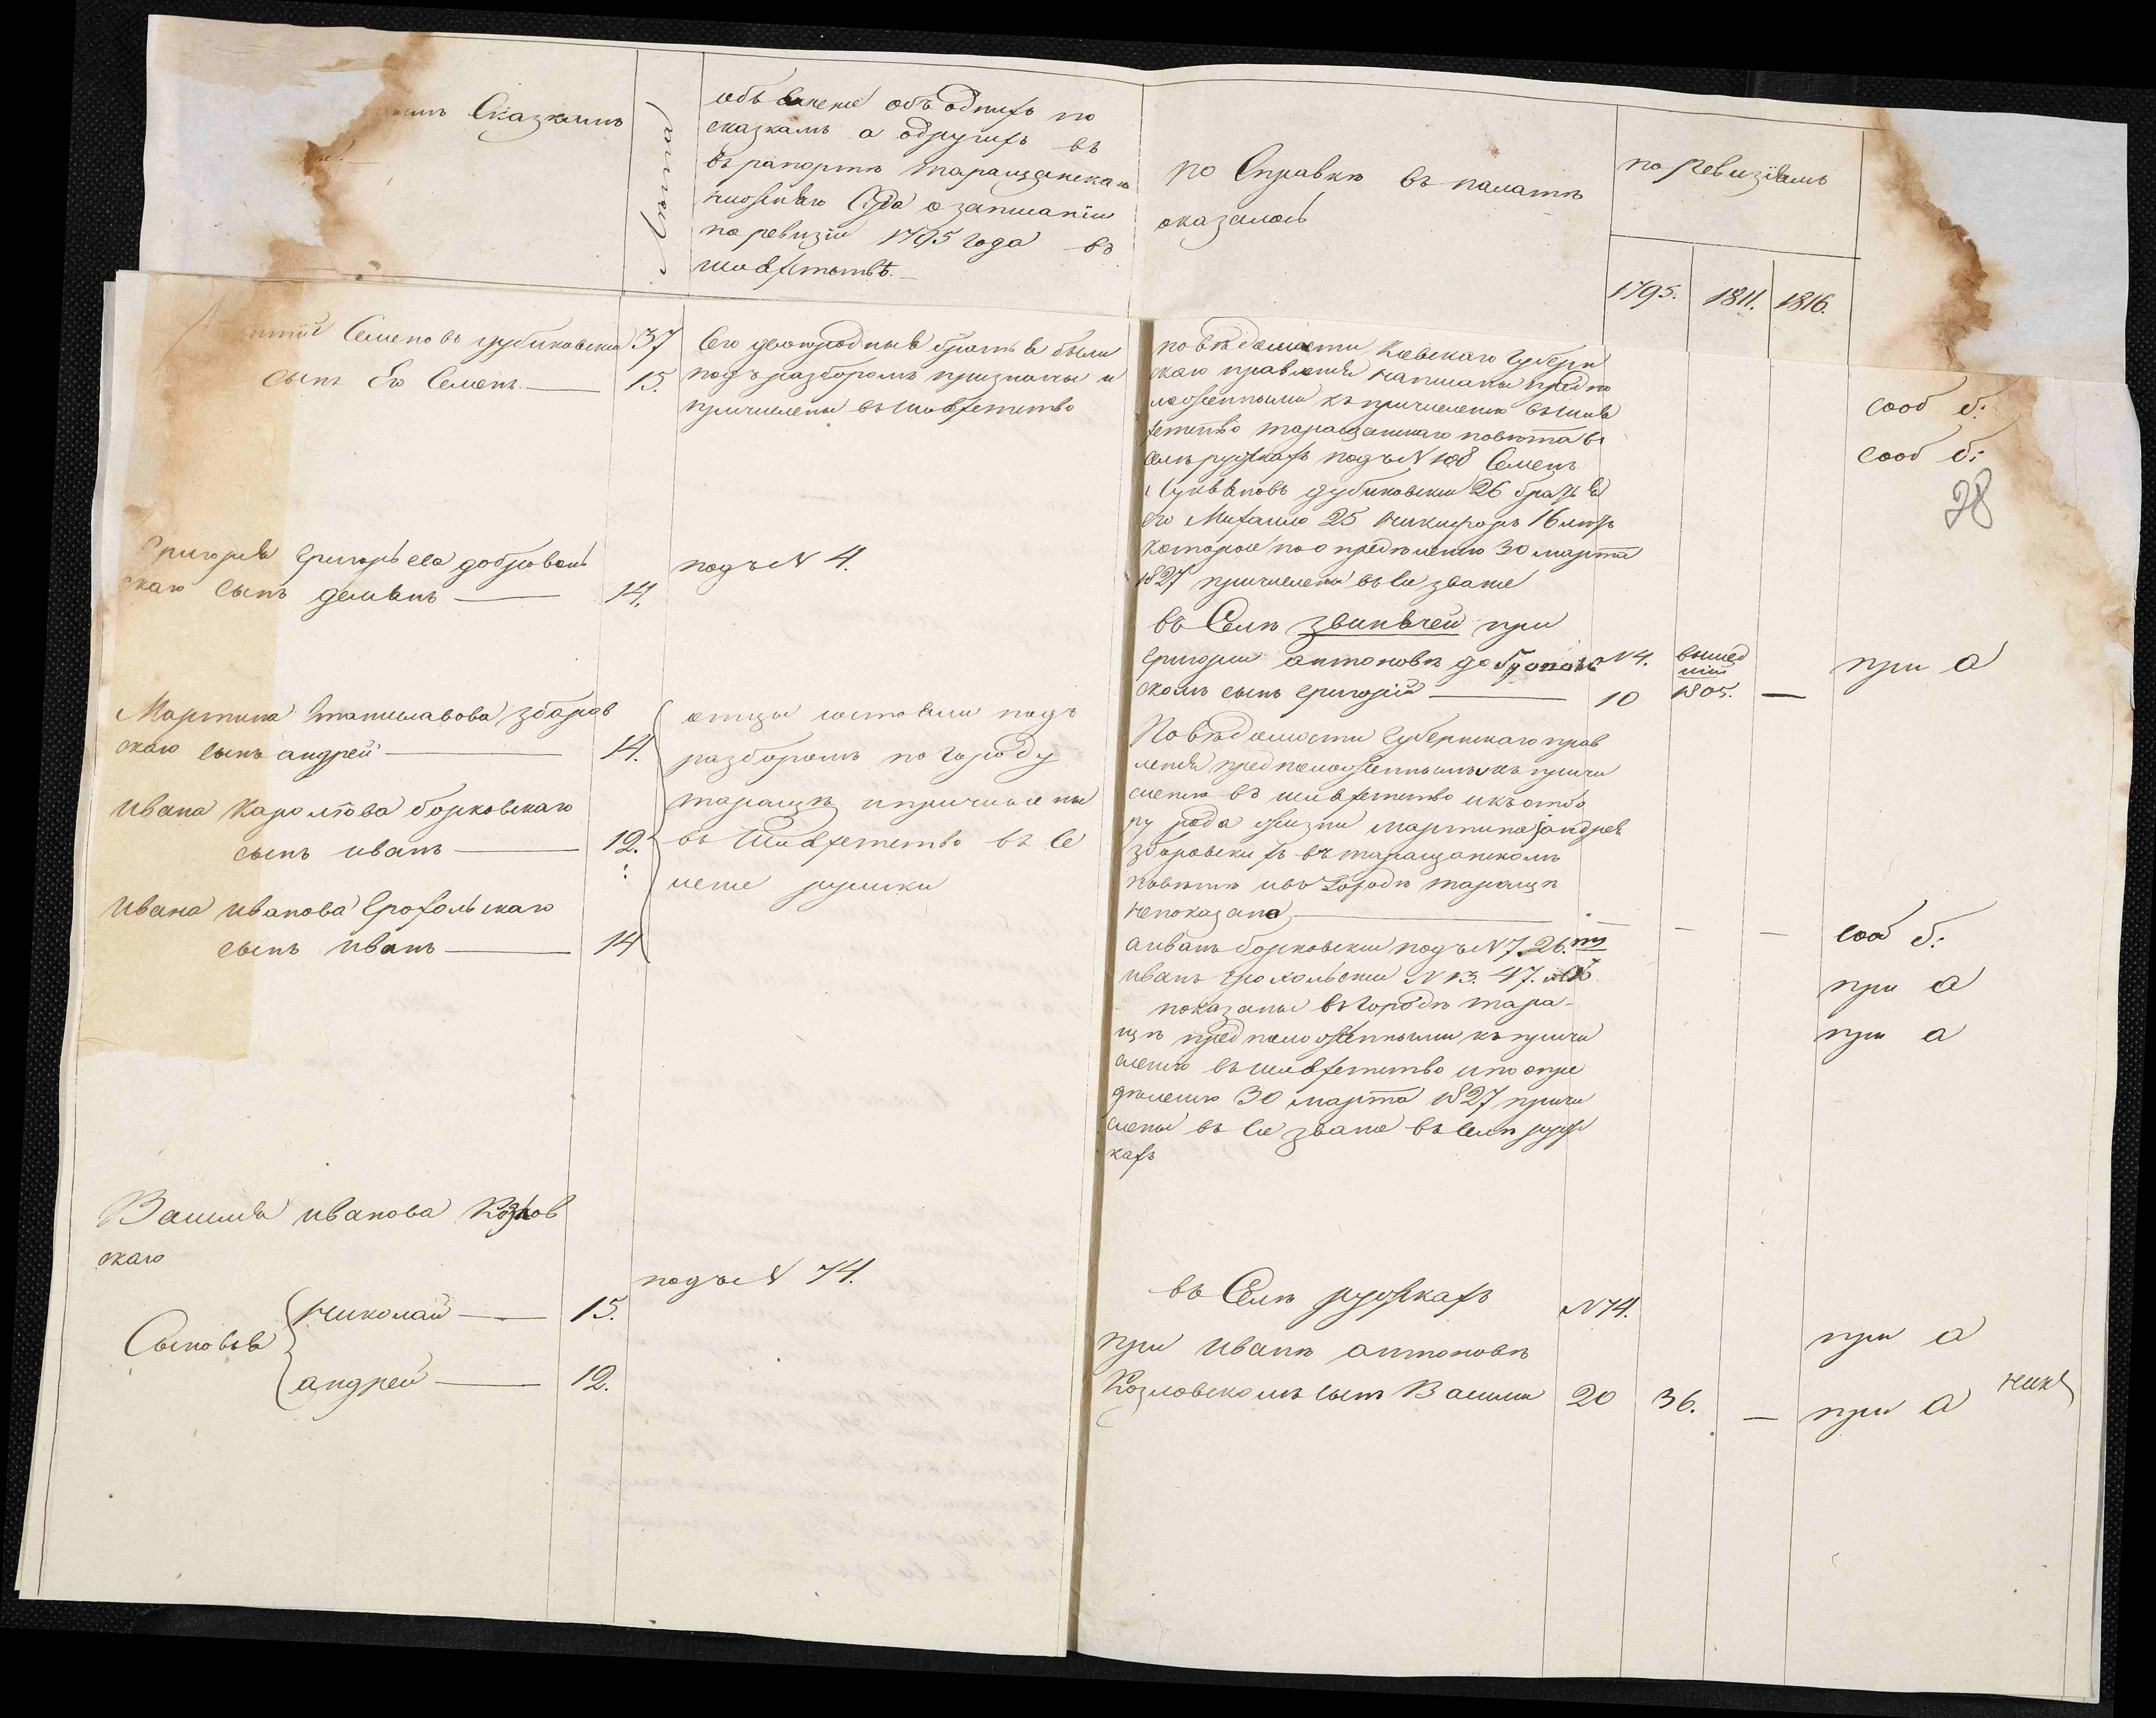 Сказкамъ
Лѣта
объясненіе объ однихъ по
сказкамъ а о другихъ въ
въ рапортѣ таращанскаго
нижняго Суда о записаніи
по ревизіи 1795 года въ
шляхетствѣ.
по Справкѣ въ палатѣ
оказалось
по ревизіямъ
1795. 1811. 1816.
Семеновъ дубиковскій 37
сынъ Его Семенъ — 15.
Его двоюродныя братья были
подъ разборомъ признаны и
причислены въ шляхетство
по вѣдомости Кіевскаго Губерн
скаго правленія написаны предпо
ложенными къ причисленію въ шля
хетство таращанскаго повѣта въ
селѣ ружкахъ подъ N 108 Семенъ
Лукьяновъ дубиковскій 26 братья
его Михайло 25 Никифоръ 16 лѣтъ
которые по опредѣленію 30 марта
1827 причислены въ сіе званіе
сооб б:
сооб б:
28
Григорія Григорьева доброван
скаго сынъ демьянъ — 14.
подъ N 4.
въ Селѣ звинячей при
Григорій антоновѣ N 4.
скомъ сынъ Григорій — 10
вышед
шій
1805. —
при а
Мартина Станиславова збаров
скаго сынъ андрей — 14.
Ивана Каролева борковскаго
сынъ иванъ — 12.
Ивана Иванова Грохольскаго
сынъ Иванъ — 14
отцы состояли подъ
разборомъ по городу
таращѣ и причислены
въ Шляхетство въ се
леніе ружки
По вѣдомости Губернскаго прав
ленія предположеннымъ къ причи
сленію въ шляхетство и къ отбо
ру рода жизни мартина и андрея
збаровскихъ въ таращанскомъ
повѣтѣ и въ городѣ таращѣ
непоказано — — —
а иванъ борковскій подъ N 7. 26.
иванъ Грохольскій N 13. 47. лѣтъ
показаны въ городѣ тара-
щѣ предположенными къ причи
сленію въ шляхетство и по опре
дѣленію 30 марта 1827 причи
слены въ сіе званіе въ селѣ руж
кахъ
сооб б:
при а
при а
Василія иванова Козлов
скаго
Сыновья
Николай — 15.
андрей — 12.
подъ N 74.
въ Селѣ ружкахъ N 74.
при иванѣ антоновѣ
Козловскомъ сынъ Василій 20 36. —
при а
при а